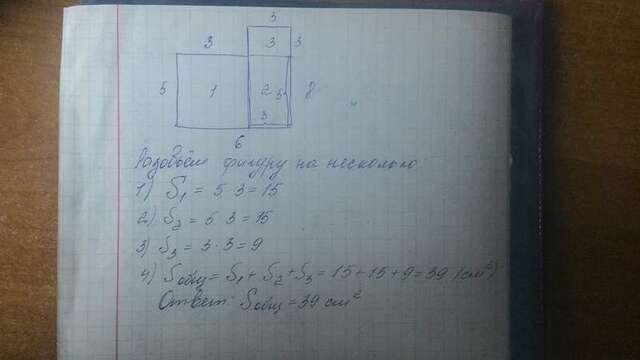 3
3 3 3
5 1 2 5 8
3
6
Разобьём фигуру на несколько
1) S₁ = 5 3 = 15
2) S₂ = 5 3 = 15
3) S₃ = 3 · 3 = 9
4) Sобщ = S₁ + S₂ + S₃ = 15 + 15 + 9 = 39 (см²)
Ответ: Sобщ = 39 см²